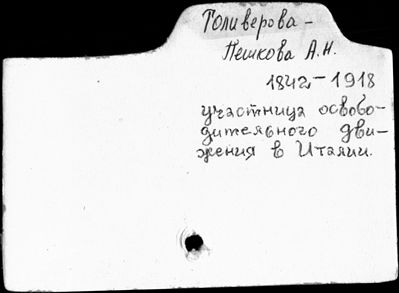 Толиверова-
Пешкова А.Н.
1842-1918
участница освобо-
дительного дви-
жения в Италии.